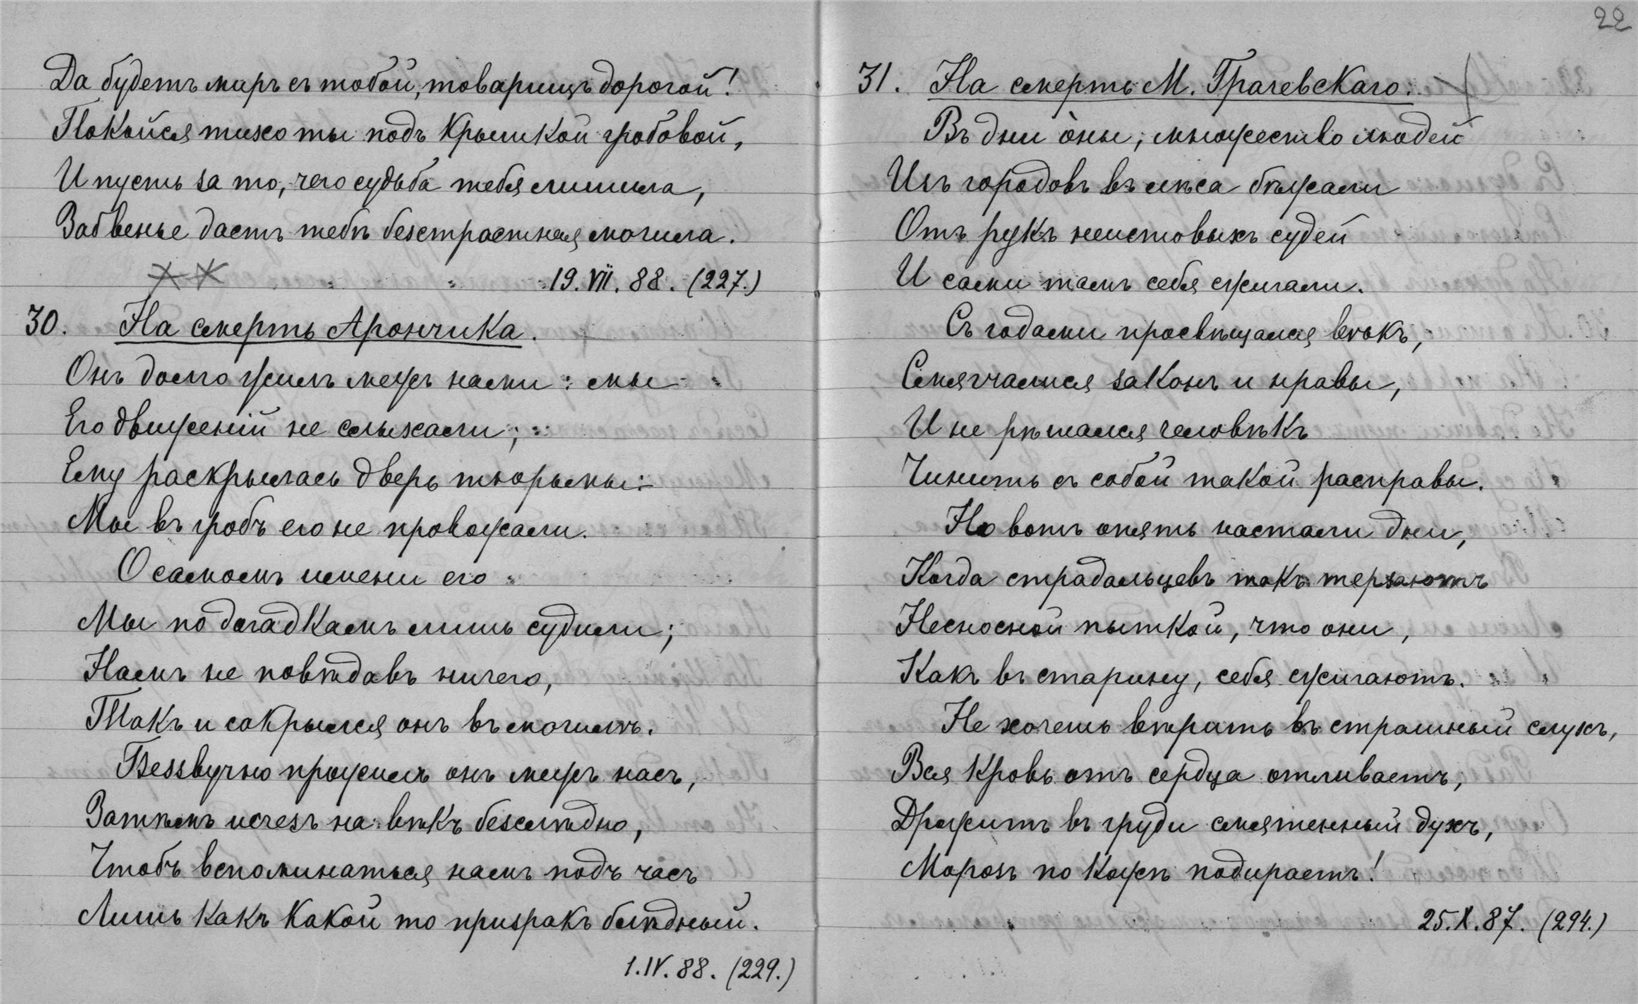 Да будетъ миръ съ тобой, товарищъ дорогой!
Покойся тихо ты подъ крышкой гробовой,
И пусть за то, чего судьба тебя лишила,
Забвенье дастъ тебѣ безстрастная могила.
19. VII. 88. (227.)
30. На смерть Арончика.
Онъ долго жилъ межъ нами: мы
Его движеній не слыхали;
Ему раскрылась дверь тюрьмы:
Мы въ гробъ его не провожали.
О самомъ имени его
Мы по догадкамъ лишь судили;
Намъ не повѣдавъ ничего,
Такъ и сокрылся онъ въ могилѣ.
Беззвучно прожилъ онъ межъ насъ,
Затѣмъ исчезъ на вѣкъ безслѣдно,
Чтобъ вспоминаться намъ подъ часъ
Лишь какъ какой то призракъ блѣдный.
1. IV. 88. (229.)
22
31. На смерть М. Грачевскаго.
Въ дни о̀ны, множество людей
Изъ городовъ въ лѣса бѣжали
Отъ рукъ неистовыхъ судей
И сами тамъ себя сжигали.
Съ годами просвѣщался вѣкъ,
Смягчалися законъ и нравы,
И не рѣшался человѣкъ
Чинить съ собой такой расправы.
Но вотъ опять настали дни,
Когда страдальцевъ такъ терзаютъ
Несносной пыткой, что они,
Какъ въ старину, себя сжигаютъ.
Не хочешь вѣрить въ страшный слухъ,
Вся кровь отъ сердца отливаетъ,
Дрожитъ въ груди смятенный духъ,
Морозъ по кожѣ подираетъ!
25. X. 87. (294.)